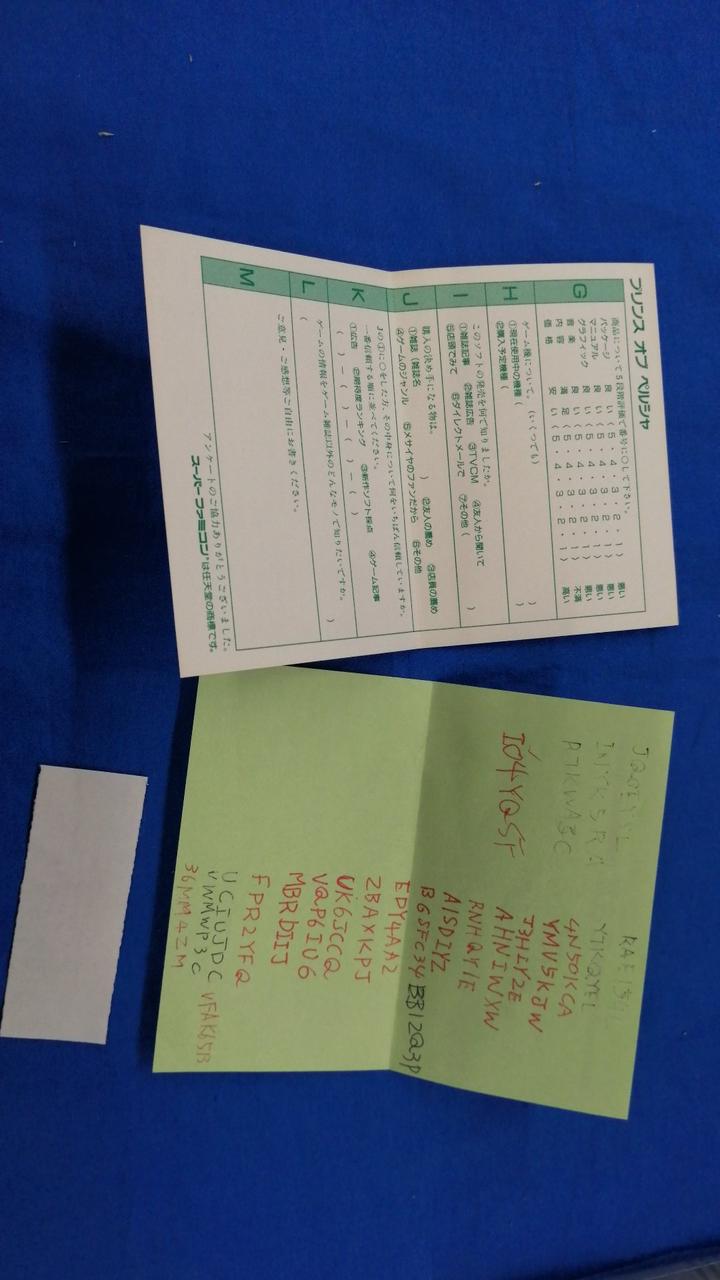 プリンス オブ ペルシャ
G
商品について5段階評価で番号に○して下さい。
パッケージ 良い(5・4・3・2・1)悪い
マニュアル 良い(5・4・3・2・1)悪い
グラフィック 良い(5・4・3・2・1)悪い
音楽 満足(5・4・3・2・1)不満
価格 安い(5・4・3・2・1)高い
H
ゲーム機について。(いくつでも)
①現在使用中の機種( )
②購入予定機種( )
I
このソフトの発売を何で知りましたか。
①雑誌記事 ②雑誌広告 ③TVCM ④友人から聞いて
⑤店頭でみて ⑥ダイレクトメールで ⑦その他( )
J
購入の決め手になる物は。
①雑誌(雑誌名 ) ②友人の薦め ③店員の薦め
④ゲームのジャンル ⑤メサイヤのファンだから ⑥その他
K
Jの①に○をした方、その中身について何をいちばん信頼していますか。
一番信頼する順に並べてください。
①広告 ②期待度ランキング ③新作ソフト採点 ④ゲーム記事
( )―( )―( )―( )
L
ゲームの情報をゲーム雑誌以外のどんなモノで知りたいですか。
( )
M
ご意見・ご感想等ご自由にお書きください。
アンケートのご協力ありがとうございました。
スーパーファミコン®は任天堂の商標です。
R7KWA3C
Y7KQYEL
4N50KCA
YMV5KJW
I04YQ5F
T3HIYZE
AHNIWXW
RNHQYIE
AISDIYZ
B65FC34
BB12Q3P
EPY4AA2
ZBAX1KPJ
UK6JCCQ
VQP6IU6
MBRDIIJ
FPR2YFQ
UCIUJDC
VWMWP3C
VFAK65B
36MM4ZM